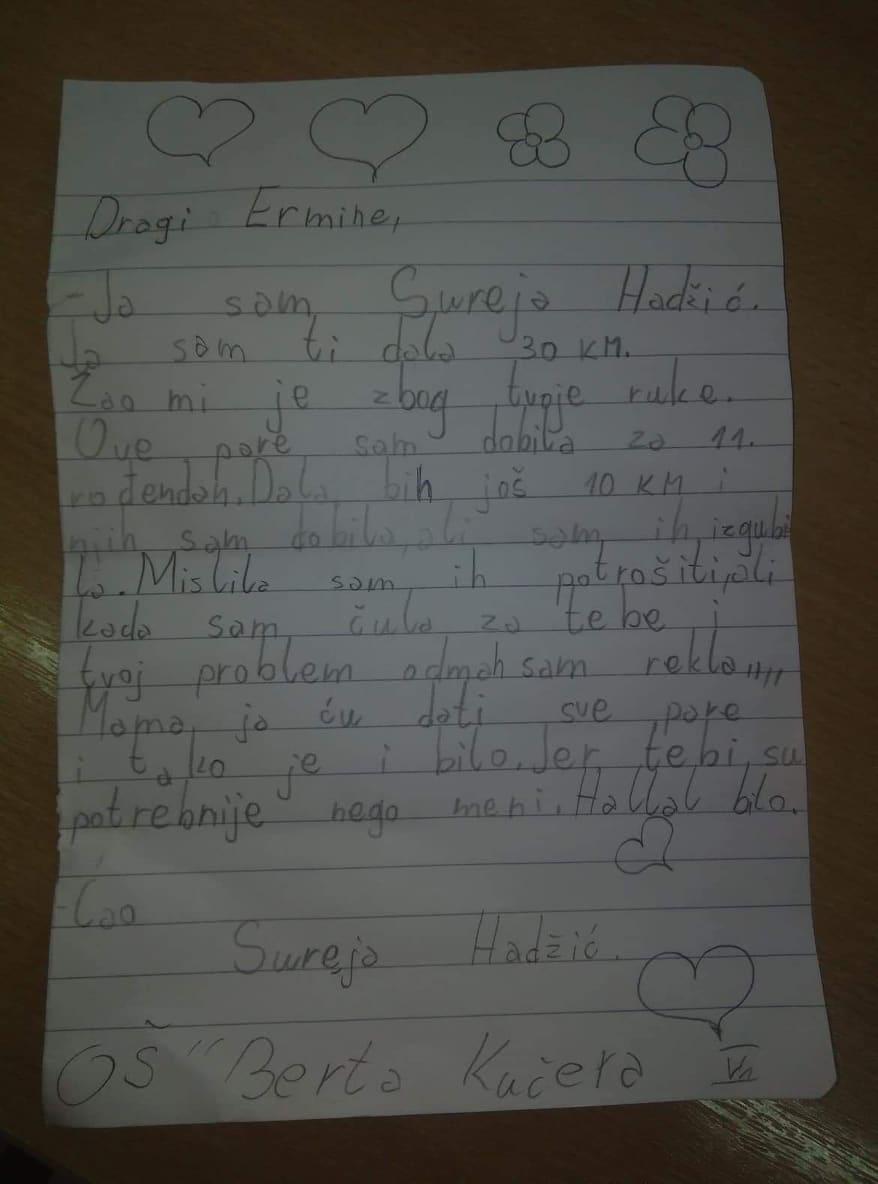 Dragi Ermine,
-Ja sam Sureja Hadžić.
Ja sam ti dala 30 KM.
Žao mi je zbog tvoje ruke.
Ove pare sam dobila za 11.
rođendan. Dala bih još 10 KM i
njih sam dobila, ali sam ih izgubi
la. Mislila sam ih potrošiti, ali
kada sam čula za tebe i
tvoj problem odmah sam rekla,,,,
Mama, ja ću dati sve pare
i tako je i bilo. Jer tebi su
potrebnije nego meni. Hallal bilo.
-Ćao
Sureja Hadžić.
OŠ "Berta Kučera